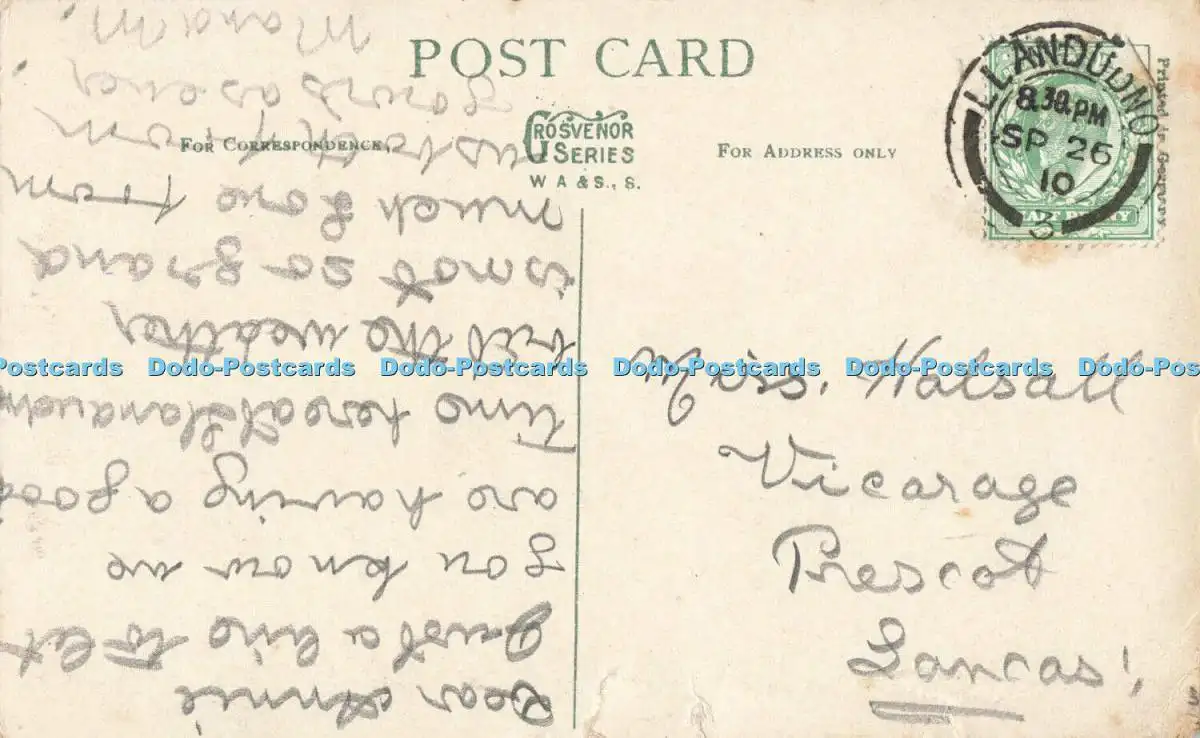 POST CARD
FOR CORRESPONDENCE.
GROSVENOR
SERIES
W A & S., S.
FOR ADDRESS ONLY
Printed in Germany
LLANDUDNO
8.30 PM
SP 26
10
3
HALF PENNY
Miss. Halsall
Vicarage
Prescot
Lancas!
Dear Annie
Just a line to let
you know we
are having a good
time here at Llandudno
but the weather
is not so grand
much love from
from
yours as ever
Dodo-Postcards Dodo-Postcards Dodo-Postcards Dodo-Postcards Dodo-Postcards